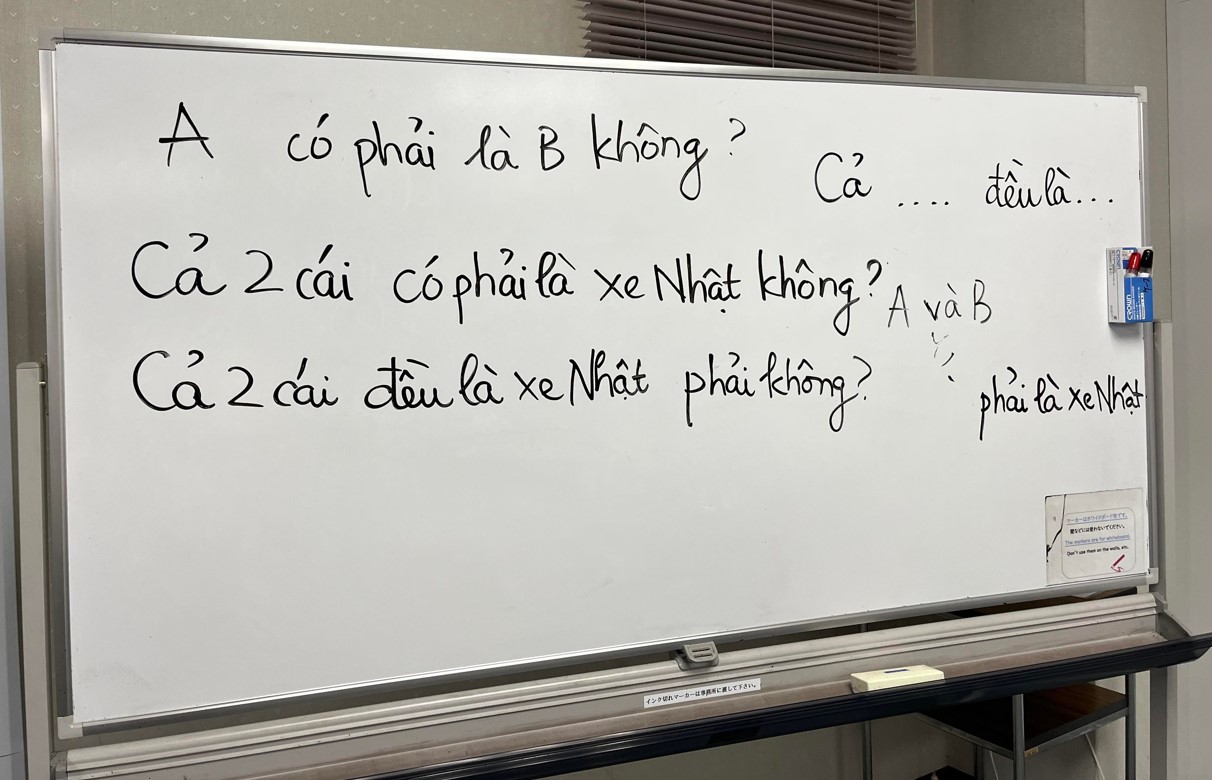 A có phải là B không?
Cả .... đều là...
Cả 2 cái có phải là xe Nhật không?
A và B
Cả 2 cái đều là xe Nhật phải không?
phải là xe Nhật
マーカーはホワイトボード用です。
壁などには使わないでください。
The markers are for whiteboard.
Don't use them on the walls, etc.
インク切れマーカーは事務所に戻して下さい。